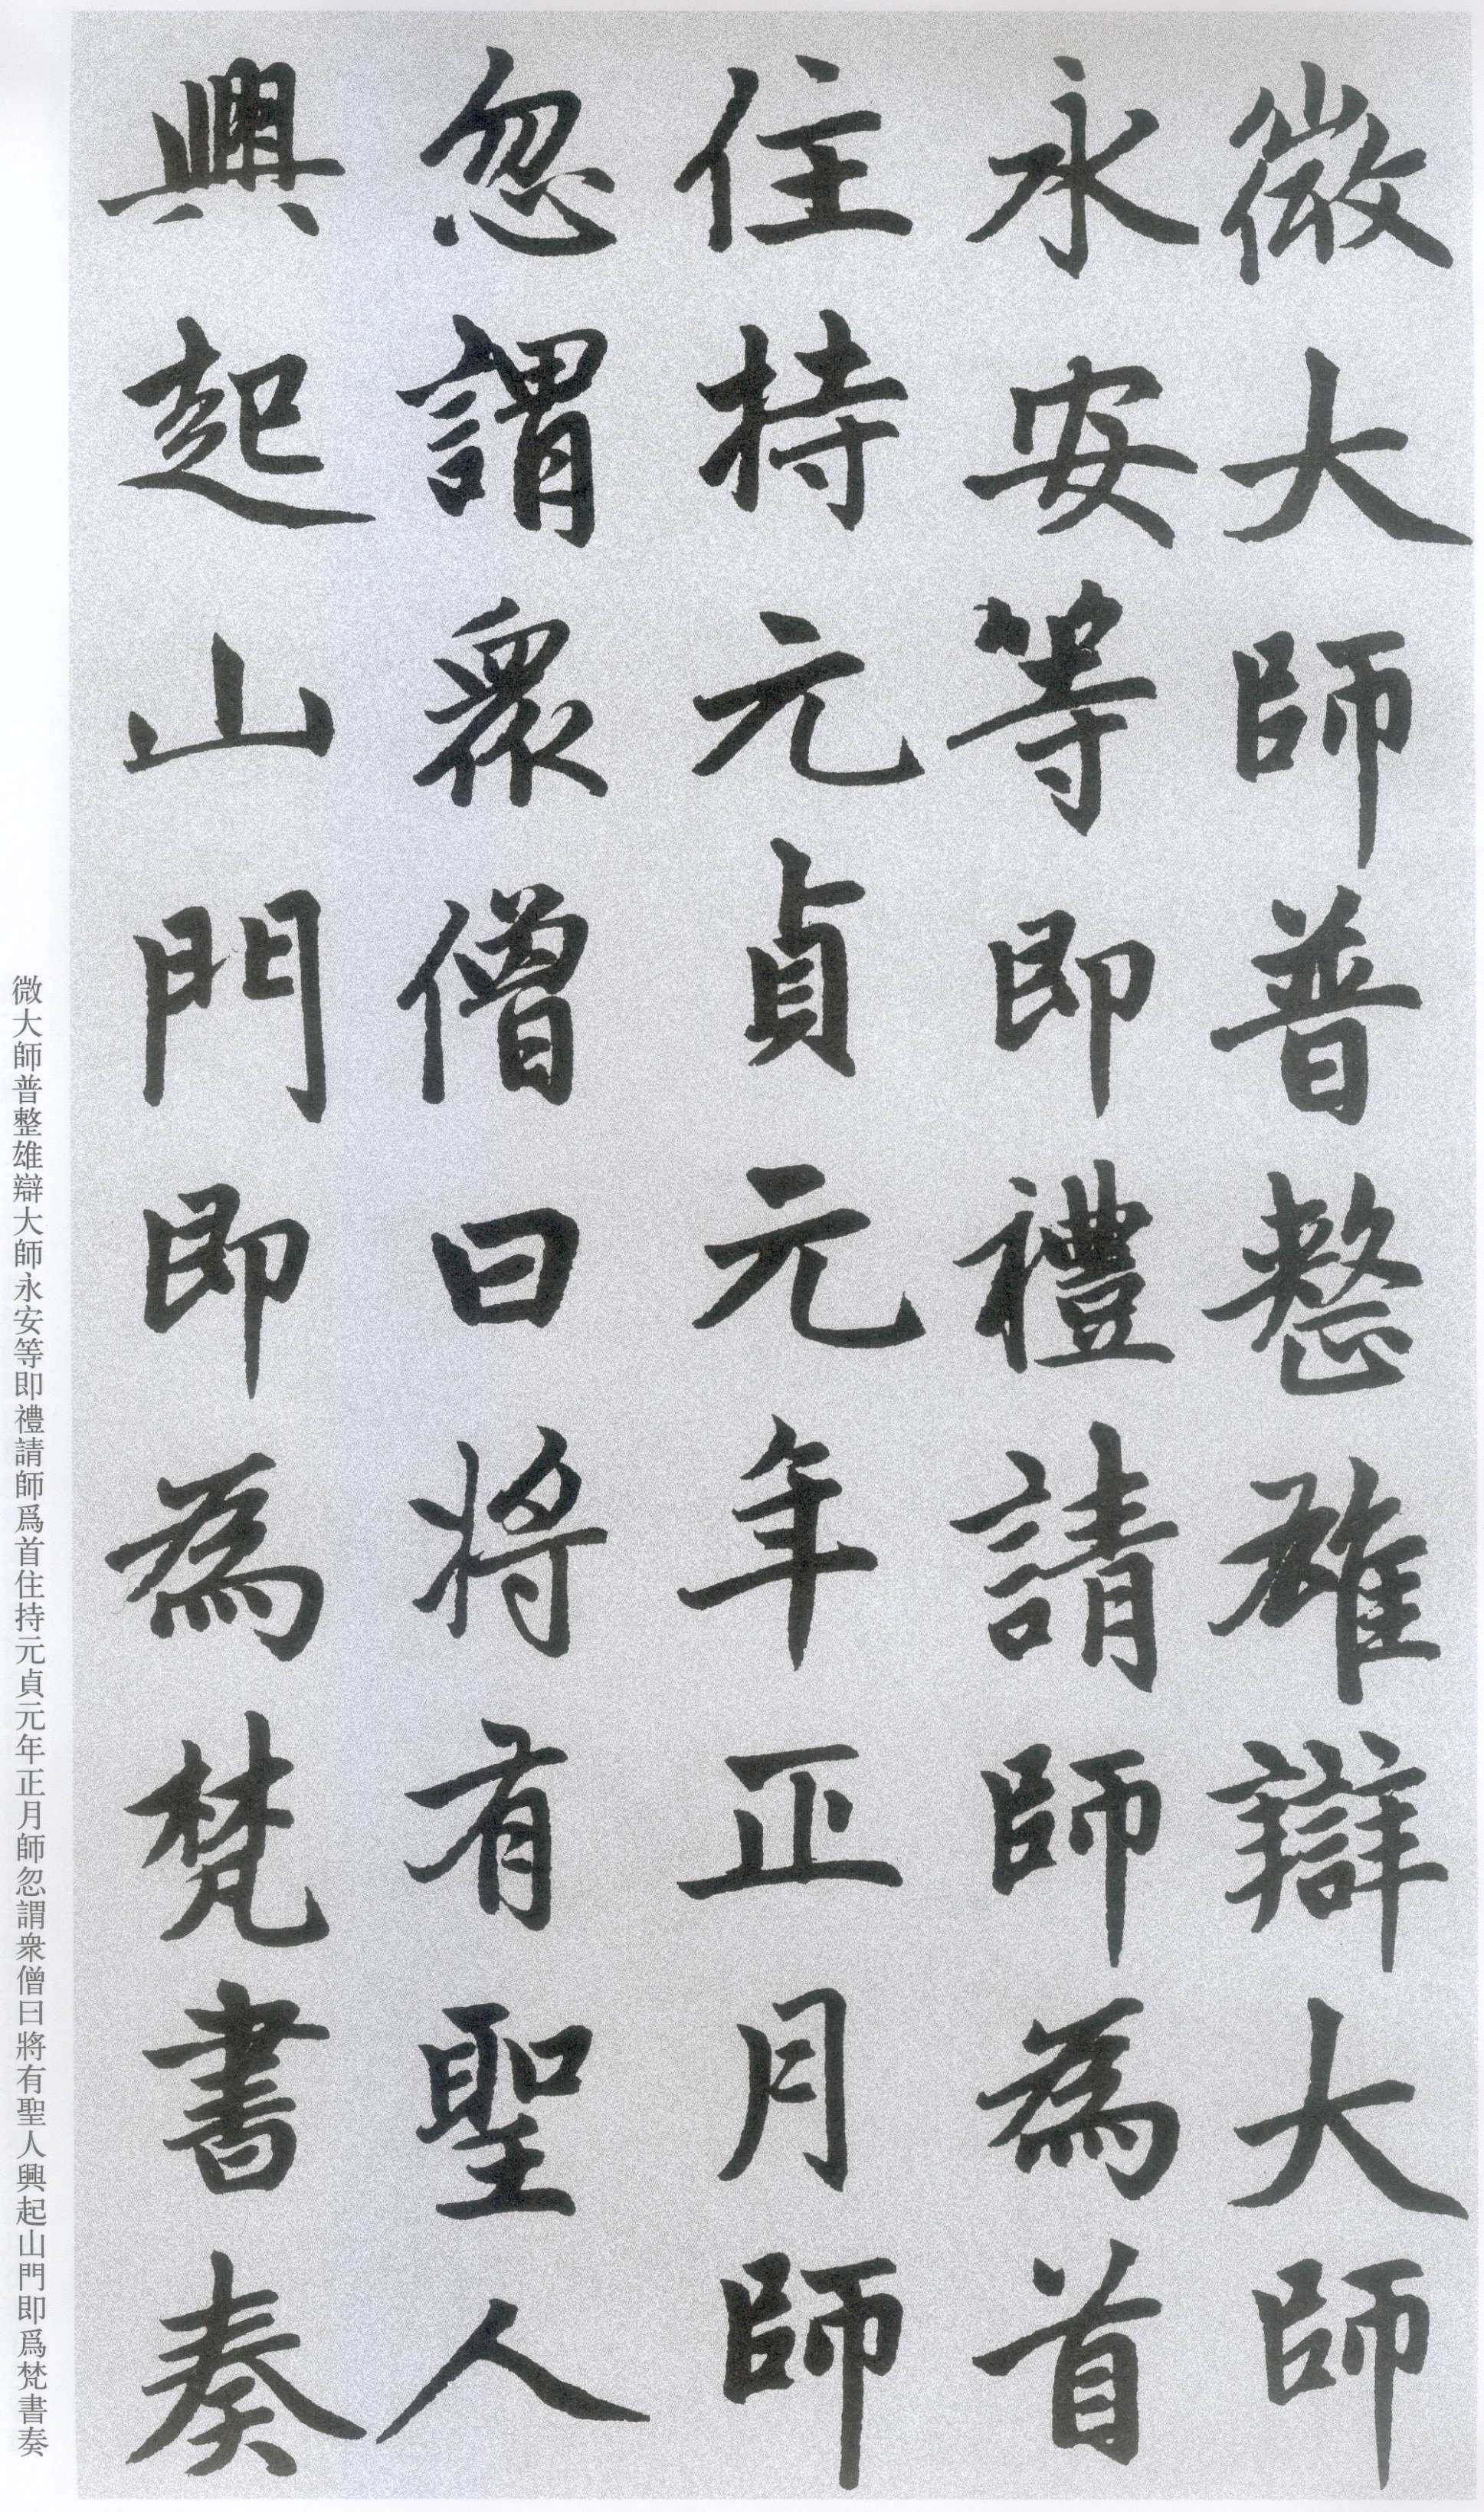 微大師普整雄辯大師
永安等即禮請師為首
住持元貞元年正月師
忽謂眾僧曰將有聖人
興起山門即為梵書奏
微大師普整雄辯大師永安等即禮請師爲首住持元貞元年正月師忽謂衆僧曰將有聖人興起山門即爲梵書奏